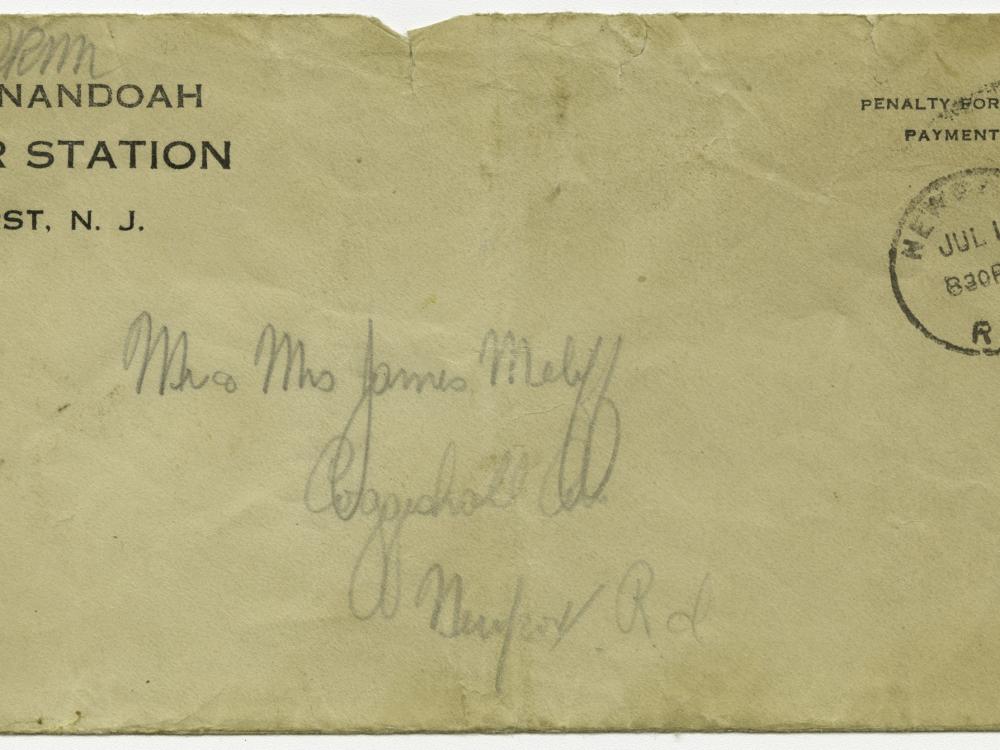 NANDOAH
R STATION
ST, N. J.
PENALTY FOR
PAYMENT
NEWP
JUL 1
830P
R
Mr & Mrs James
Coggeshall Av.
Newport R.I